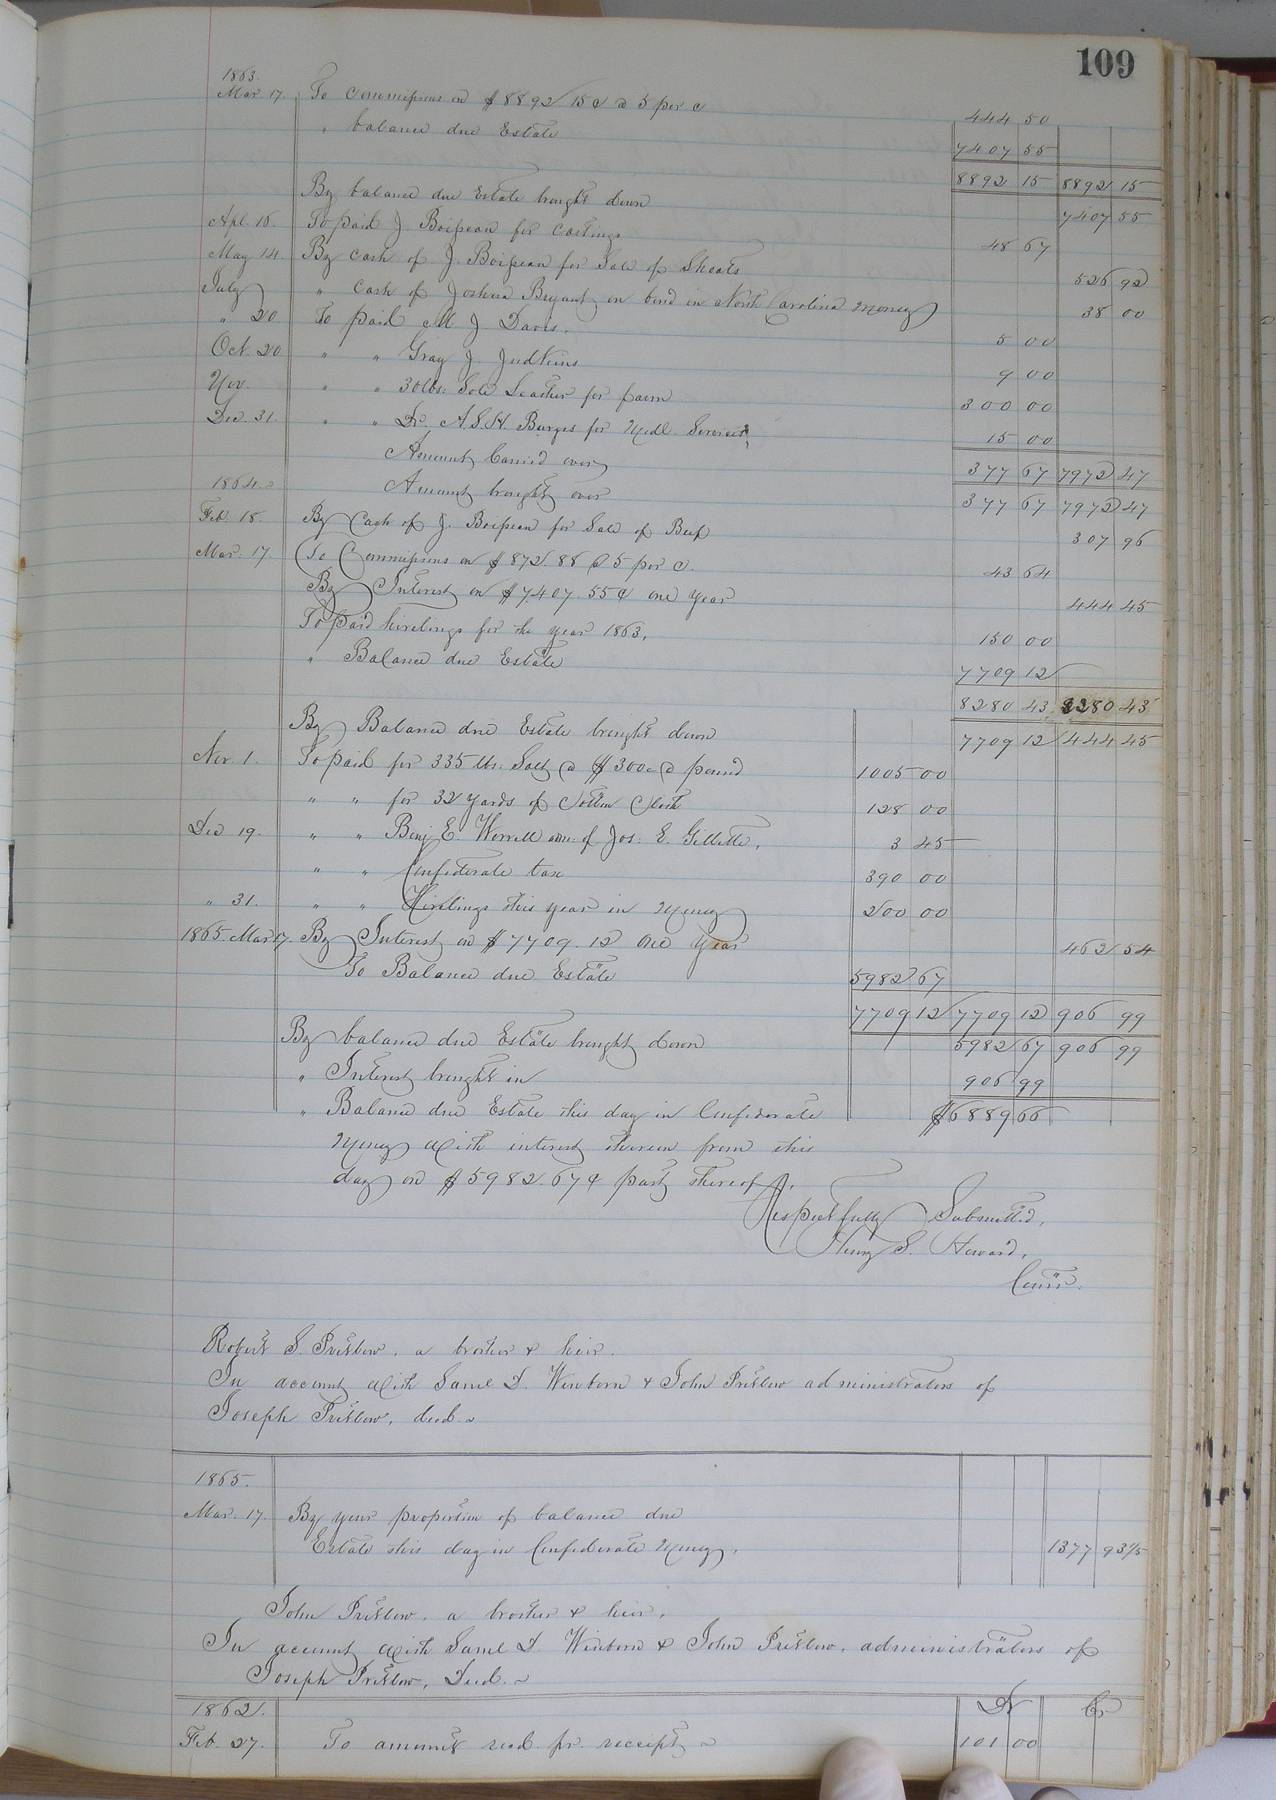 109
1863.
Mar. 17. To Commissions on $8892 15¢ @ 5 per c 444 50
" balance due Estate 7407 55
8892 15 8892 15
By balance due Estate brought down 7407 55
Apl. 16. To paid J. Boisseau for castings 48 67
May 14. By cash of J. Boisseau for Sale of Shoats 526 92
July " cash of Joshua Bryant on bond in North Carolina Money 38 00
" 20 To paid M J Davis. 5 00
Oct. 20 " " Gray J. Judkins 9 00
Nov. " " 30 lbs. Sole Leather for farm 300 00
Dec. 31. " " Dr. A. S. H. Burges for Medl Services, 15 00
Amount Carried over 377 67 7972 47
1864. Amount brought over 377 67 7972 47
Feb. 18. By Cash of J. Boisseau for Sale of Beef 307 96
Mar. 17. To Commissions on $872.88 @ 5 per c. 43 64
By Interest on $7407.55¢ one year 444 45
To paid hirelings for the year 1863, 150 00
" Balance due Estate 7709 12
8280 43 8280 43
By Balance due Estate brought down 7709 12 444 45
Nov. 1. To paid for 335 lbs. Salt @ $3 00c @ pound 1005 00
" " for 32 yards of Cotton Cloth 128 00
Dec 19. " " Benj E. Worrell adm. of Jos: E. Gillette, 3 45
" " Confederate tax 390 00
" 31. " " Hirelings this year in Money 200 00
1865. Mar 17. By Interest on $7709.12 One Year 462 54
To Balance due Estate 5982 67
7709 12 7709 12 906 99
By balance due Estate brought down 5982 67 906 99
" Interest brought in 906 99
" Balance due Estate this day in Confederate $6889 66
Money with interest thereon from this
day on $5982.67¢ part thereof.
Respectfully Submitted,
Henry S. Howard,
Comr.
Robert S. Pretlow, a brother & heir.
In account with Saml D. Winborn & John Pretlow administrators of
Joseph Pretlow, decd.
1865.
Mar. 17. By your proportion of balance due
Estate this day in Confederate Money, 1377 93 1/5
John Pretlow, a brother & heir,
In account with Saml D Winborn & John Pretlow, administrators of
Joseph Pretlow, Decd.
1862. Dr Cr
Feb. 27. To amount recd. pr. receipt 101 00